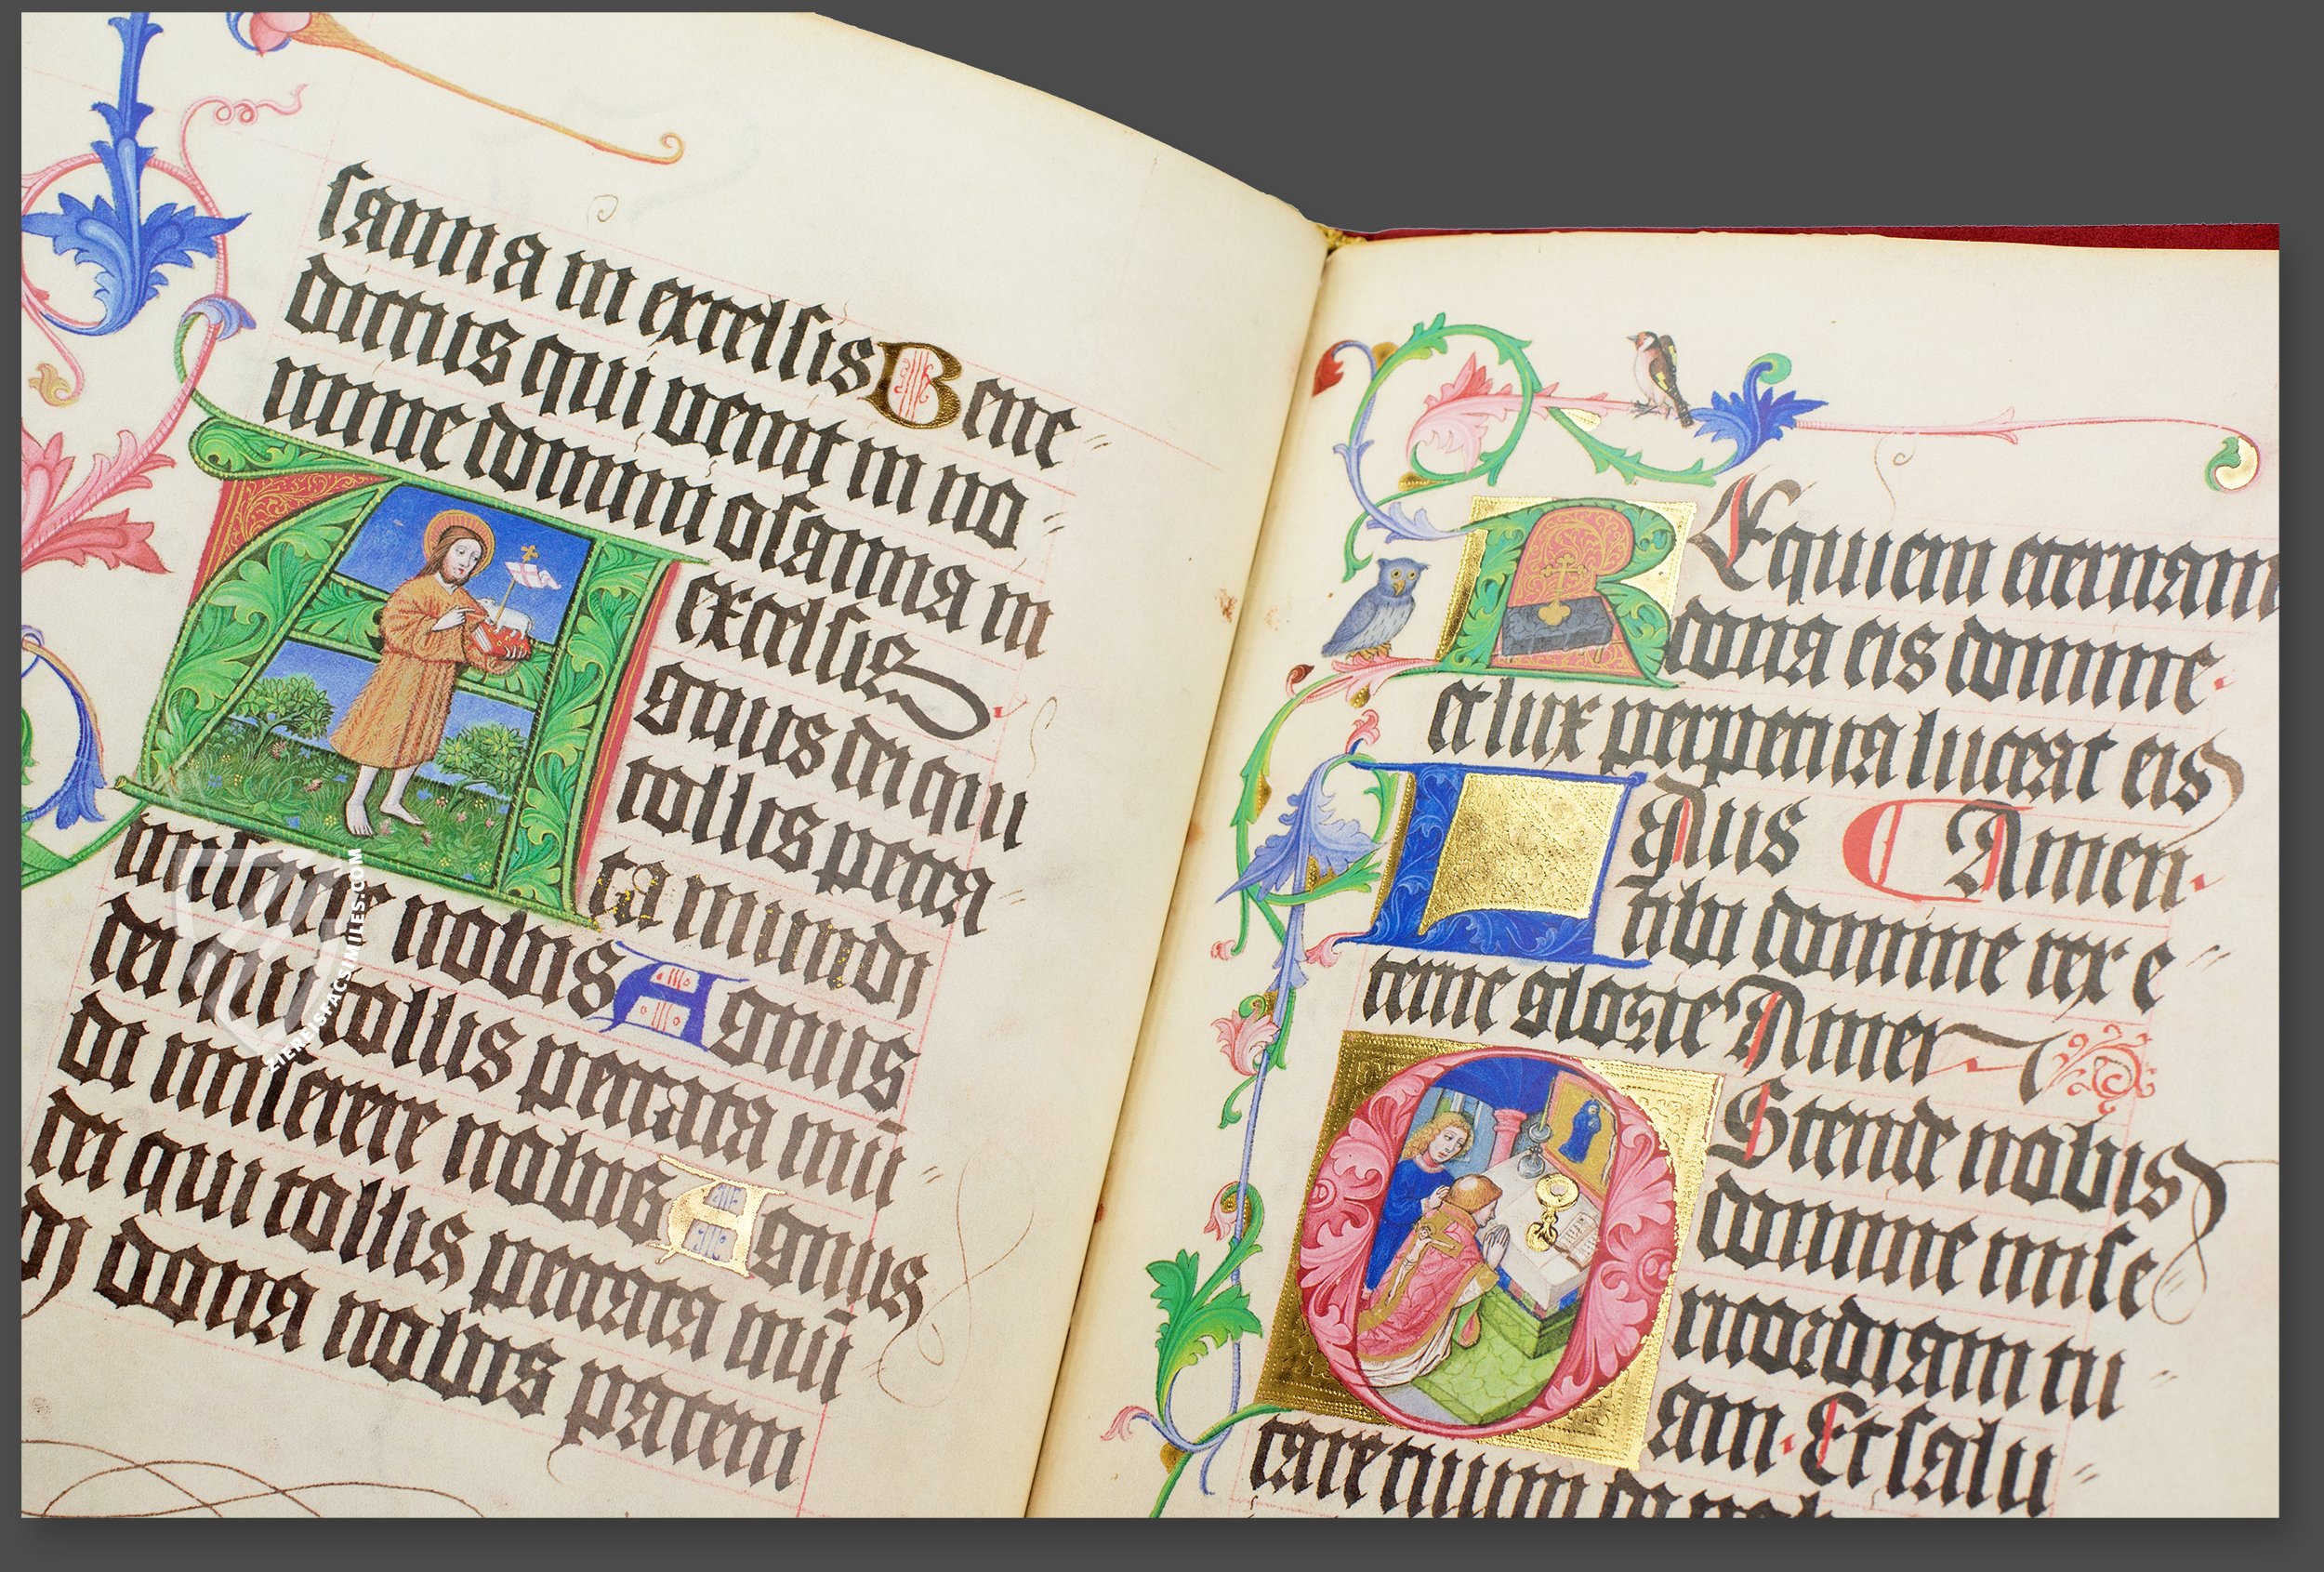 sanna in excelsis Bene
dictus qui venit in no
mine domini osanna in
excelsis
Agnus dei qui
tollis pecca
ta mundi
miserere nobis Agnus
dei qui tollis peccata mū
di miserere nobis Agnus
dei qui tollis peccata mū
di dona nobis pacem
ZIEREISFACSIMILES.COM
REquiem eternam
dona eis domine.
et lux perpetua luceat eis
Laus Amen.
tibi domine rex e
terne glorie Amen
OStende nobis
domine mise
ricordiam tu
am. Et salu
tare tuum da nob